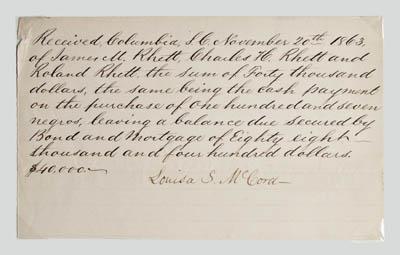 Received, Columbia, S.C. November 20th 1863,
of James M. Rhett, Charles H. Rhett and
Roland Rhett, the sum of Forty thousand
dollars, the same being the cash payment
on the purchase of One hundred and seven
negros, leaving a balance due secured by
Bond and Mortgage of Eighty eight —
thousand and four hundred dollars.
$40,000.—
Louisa S. McCord —